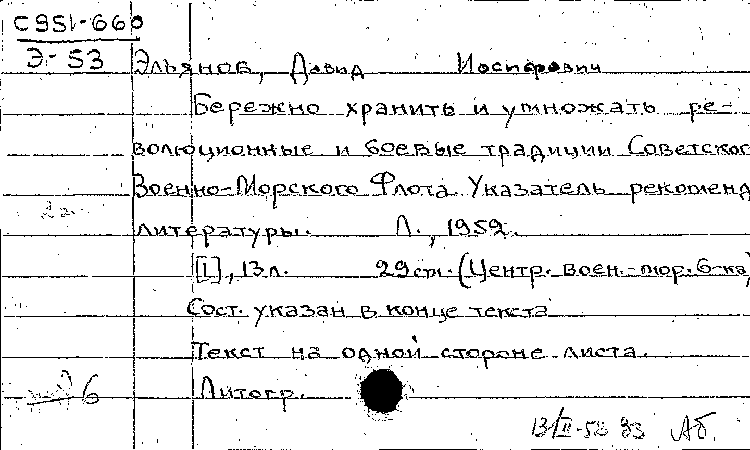 С951-660
Э-53
Эльянов, Давид Иосифович
Бережно хранить и умножать ре-
волюционные и боевые традиции Советског
Военно-Морского Флота. Указатель рекоменд
литературы. Л., 1952.
[1], 13 л. 29 см. (Центр. воен.-мор. б-ка)
Сост. указан в конце текста
Текст на одной стороне листа.
Литогр.
6
13/II-58 Аб.